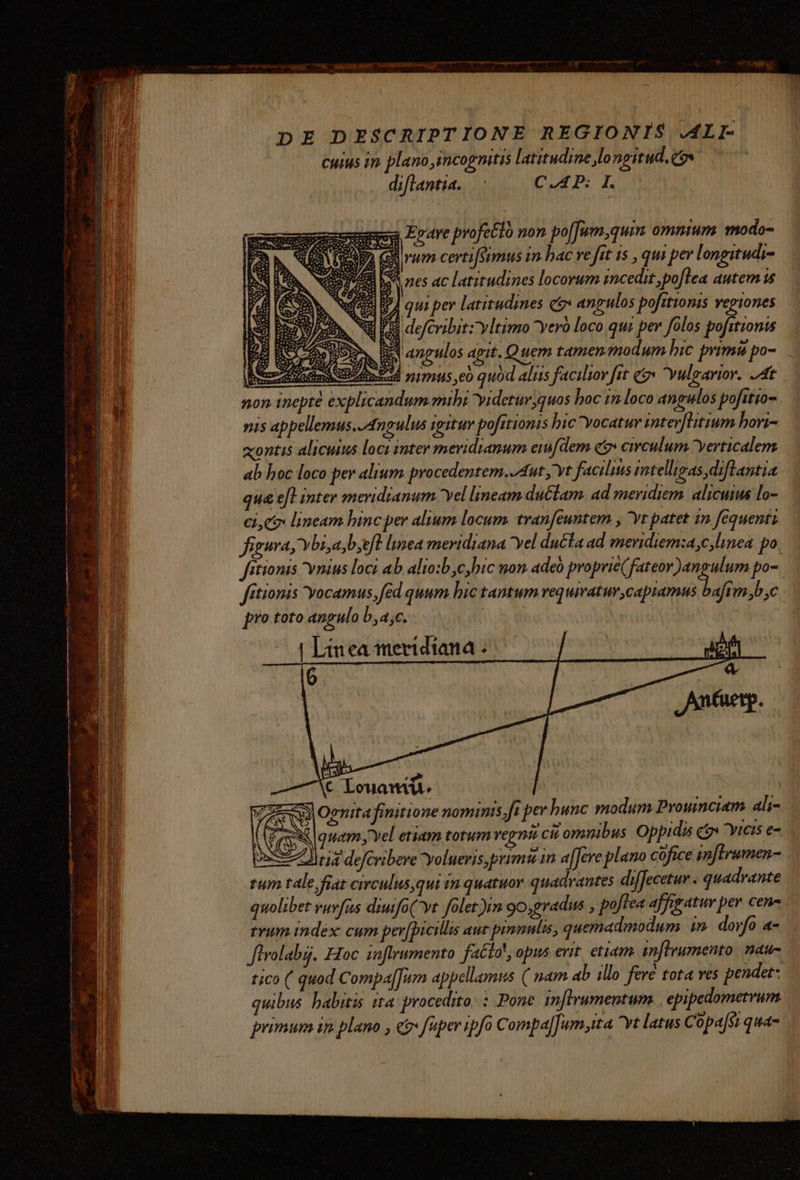 DE DESCRIPTIONE REGIONIS ALI-
cuius in plano, incognitis latitudine, longitud. &
distantia. CAP: I.
NEgare profectò non possum, quin omnium modo-
rum certissimus in hac re sit is, qui per longitudi-
nes ac latitudines locorum incedit, postea autem is
qui per latitudines & angulos positionis regiones
describit: vltimo verò loco qui per solos positionis
angulos agit. Quem tamen modum hic primũ po-
nimus, eò quòd aliis facilior sit & vulgarior. At
non ineptè explicandum mihi videtur, quos hoc in loco angulos positio-
nis appellemus. Angulus igitur positionis hic vocatur interstitium hori-
zontis alicuius loci inter meridianum eiusdem & circulum verticalem
ab hoc loco per alium procedentem. Aut, vt facilius intelligas, distantia
quæ est inter meridianum vel lineam ductam ad meridiem alicuius lo-
ci, & lineam hinc per alium locum transeuntem, vt patet in sequenti
figura, vbi, a, b, est linea meridiana vel ducta ad meridiem: a, c, linea po
sitionis vnius loci ab alio: b, c, hic non adeò propriè (fateor) angulum po-
sitionis vocamus, sed quum hic tantum requiratur, capiamus basim, b, c
pro toto angulo b, a, c.
Linea meridiana.
b
a
Antuerp.
c Louaniũ.
COgnita finitione nominis, si per hunc modum Prouinciam ali-
quam, vel etiam totum regnũ cũ omnibus Oppidis & vicis e-
tiã describere volueris, primũ in assere plano cõfice instrumen-
tum tale, fiat circulus, qui in quatuor quadrantes dissecetur. quadrante
quolibet rursus diuiso (vt solet) in 90, gradus, postea affigatur per cen-
trum index cum perspicillis aut pinnulis, quemadmodum in dorso a-
strolabij. Hoc instrumento facto, opus erit etiam instrumento nau-
tico (quod Compassum appellamus (nam ab illo ferè tota res pendet:
quibus habitis ita procedito: Pone instrumentum epipedometrum
primum in plano, & super ipso Compassum, ita vt latus Cõpassi qua-